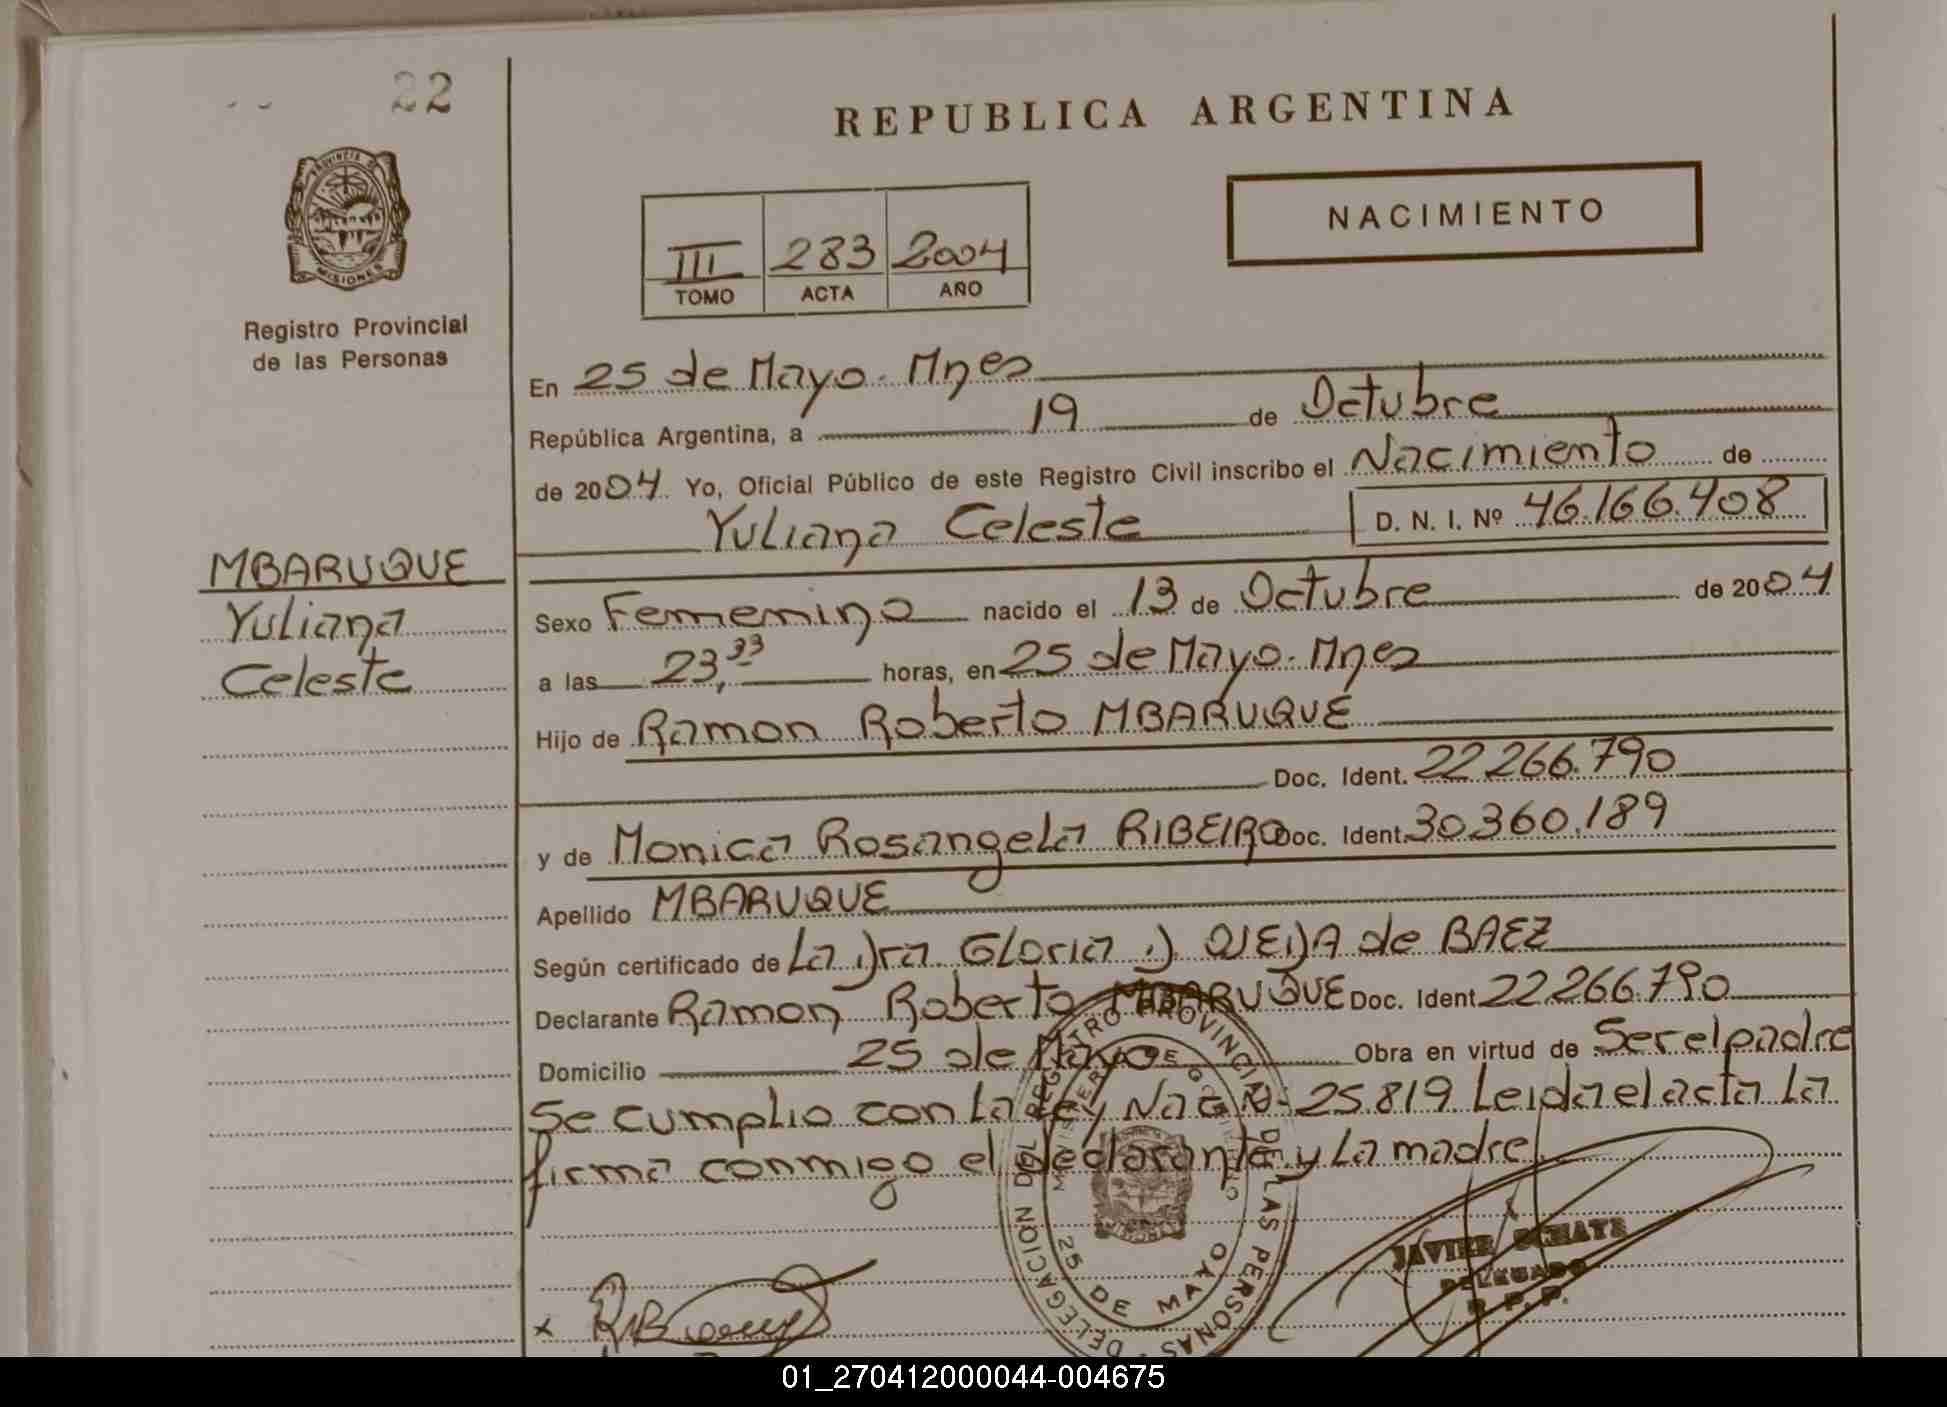 22
REPUBLICA ARGENTINA
NACIMIENTO
PROVINCIA DE
MISIONES
III 283 2004
TOMO ACTA AÑO
Registro Provincial
de las Personas
En 25 de Mayo. Mnes
República Argentina, a 19 de Octubre
de 2004. Yo, Oficial Público de este Registro Civil inscribo el Nacimiento de
Yuliana Celeste D. N. I. Nº 46.166.408
MBARUQUE
Yuliana
Celeste
Sexo Femenino nacido el 13 de Octubre de 2004
a las 23,33 horas, en 25 de Mayo. Mnes
Hijo de Ramon Roberto MBARUQUE
Doc. Ident. 22266.790
y de Monica Rosangela RIBEIRO Doc. Ident. 30360.189
Apellido MBARUQUE
Según certificado de La Dra. Gloria D. OJEDA de BAEZ
Declarante Ramon Roberto MBARUQUE Doc. Ident 22.266.790
Domicilio 25 de Mayo Obra en virtud de Ser el padre
Se cumplio con la Ley Nac Nº 25.819 Leida el acta La
firma conmigo el declarante y La madre
DELEGACION DEL REGISTRO PROVINCIAL DE LAS PERSONAS
MINISTERIO DE GOBIERNO
25 DE MAYO
JAVIER
DELEGADO
R. P. P.
x
01_270412000044-004675